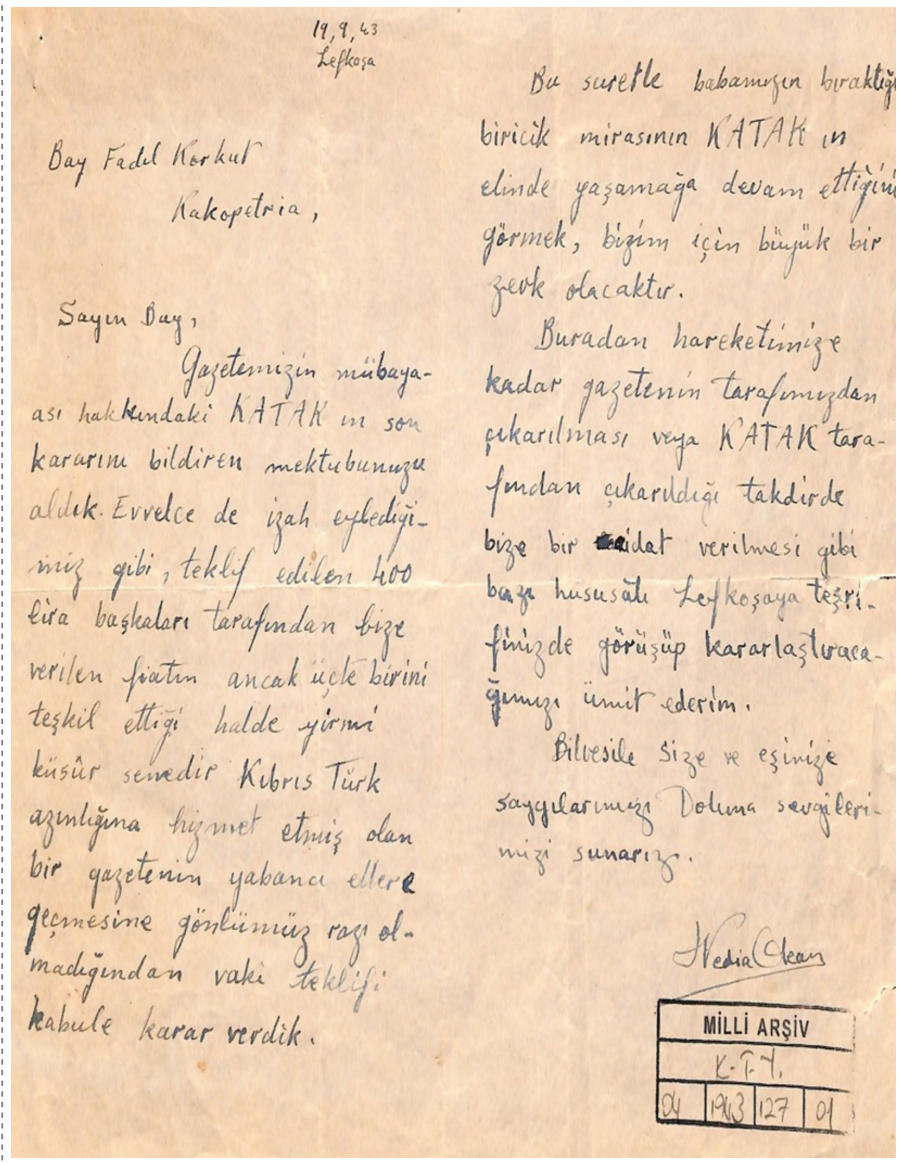 19,9,43
Lefkoşa
Bay Fadıl Korkut
Kakopetria,
Sayın Bay,
Gazetemizin mübaya-
ası hakkındaki KATAK ın son
kararını bildiren mektubunuzu
aldık. Evvelce de izah eylediği-
miz gibi, teklif edilen 400
lira başkaları tarafından bize
verilen fiatın ancak üçte birini
teşkil ettiği halde yirmi
küsûr senedir Kıbrıs Türk
azınlığına hizmet etmiş olan
bir gazetenin yabancı ellere
geçmesine gönlümüz razı ol-
madığından vaki teklifi
kabule karar verdik.
Bu suretle babamızın bıraktığı
biricik mirasının KATAK ın
elinde yaşamağa devam ettiğini
görmek, bizim için büyük bir
zevk olacaktır.
Buradan hareketimize
kadar gazetenin tarafımızdan
çıkarılması veya KATAK tara-
fından çıkarıldığı takdirde
bize bir aidat verilmesi gibi
bazı hususatı Lefkoşaya teşri-
finizde görüşüp kararlaştıraca-
ğımızı ümit ederim.
Bilvesile size ve eşinize
saygılarımızı Doluna sevgileri-
mizi sunarız.
Vedia Okan
MİLLİ ARŞİV
K.T.Y.
04 1943 127 01